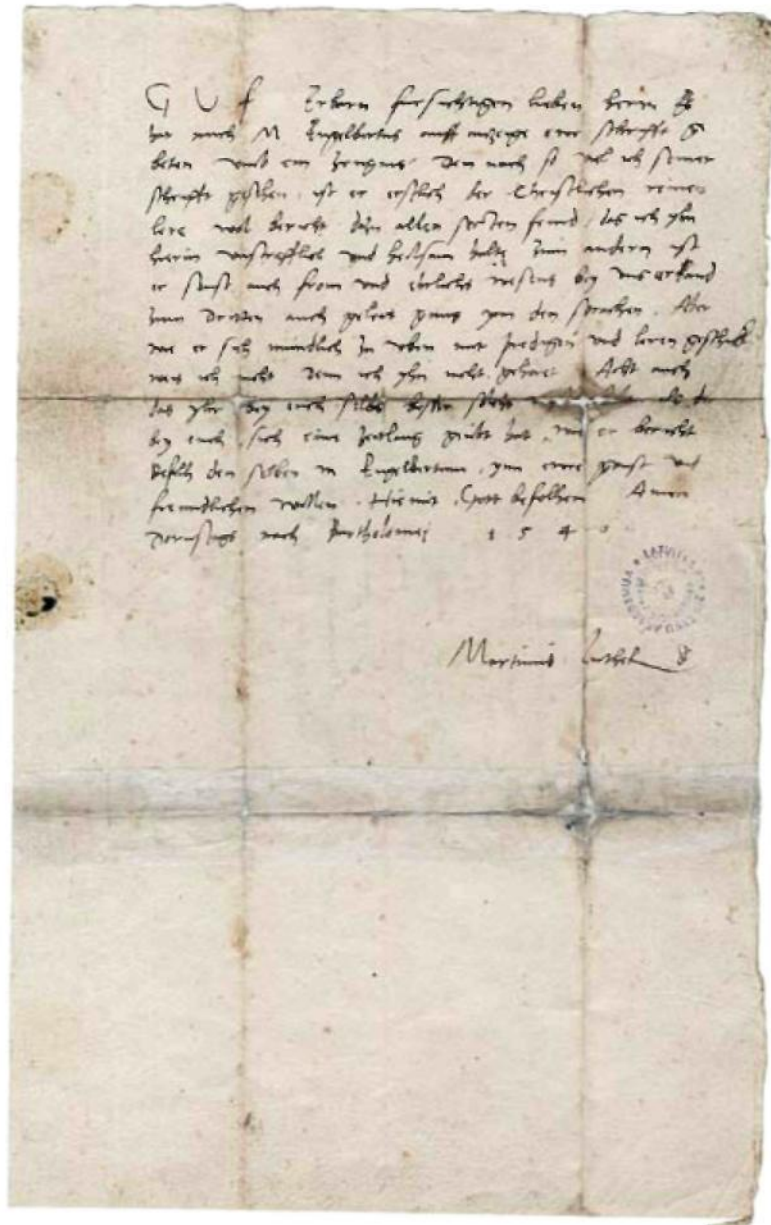 G U f Erbarn fursichtigen lieben herrn Es
hat mich M Engelbertus auff anzeige ewr schrifft ge
beten umb ein zeugnis Dem nach so viel ich seiner
schrifft gesehen, ist er erstlich der Christlichen reinen
lere wol bericht allen feind, das ich yhn
hierin unstrefflich und heilsam halte zum andern ist
er sonst auch from und ehrlichs wesens bey uns erkand
zum dritten auch gelert gnug ynn den sprachen. Aber
wie er sich mundlich zu uben mit predigen und leren geschickt
weis ich nicht Denn ich yhn nicht gehoret Acht auch
das yhr bey euch selbs
bey euch, sich eine zeitlang geubt hat, wie er bericht
Befelh den selben M Engelbertum, ynn ewre gunst und
freundlichen willen. Hiemit Gott befolhen Amen
Dornstags nach Bartholomej 1 5 4
LATVIJAS
Martinus Luther